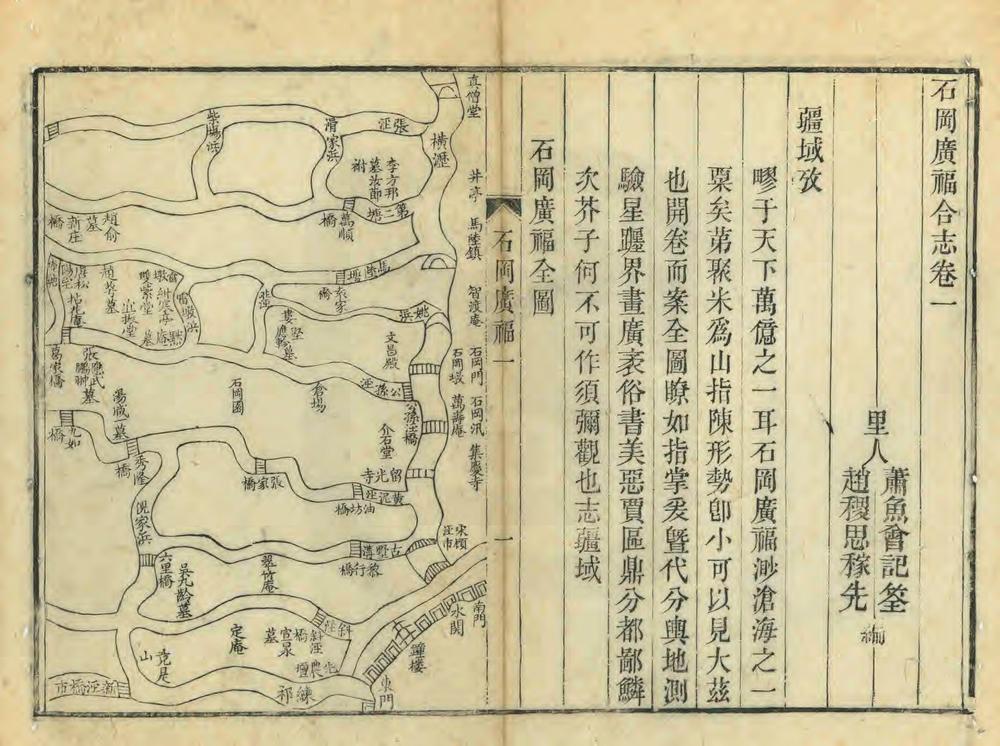 石岡廣福合志卷一
里人
蕭魚會記筌
趙稷思稼先
編
疆域攷
疁于天下萬億之一耳石岡廣福渺滄海之一
粟矣苐聚米為山指陳形勢卽小可以見大茲
也開卷而案全圖瞭如指掌爰曁代分輿地測
驗星躔界畫廣袤俗書美惡賈區鼎分都鄙鱗
次芥子何不可作須彌觀也志疆域
石岡廣福全圖
石岡廣福
一
一
真僧堂
井亭
馬陸鎮
智渡庵
石岡門
石岡汛
集慶寺
石岡墩
萬壽庵
橫瀝
張涇
滑家浜
柴賜浜
李方那
墓汝節
祔
第二塘
萬順
橋
趙俞
墓
新庄
橋
馬陸塘
姚張
婁堅
墓
文昌殿
公孫涇
公孫涇橋
介石堂
倉場
石岡園
宜振堂
趙
墓
張
墓
湯
墓
萬安橋
九如
橋
秀隆
橋
張家橋
留光寺
黃泥涇
油坊橋
沈家浜
古野溝
黎行橋
六里橋
吳九齡墓
翠竹庵
斜涇
斜涇
橋
宣泉
墓
定庵
北農壇
練祁
新涇橋市
東門
鐘樓
水関
南門